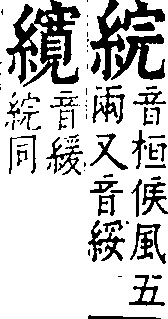 綄
音桓候風五
兩又音綏
繶
音緩
綄同